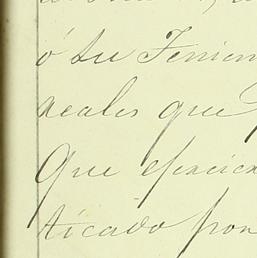 ó su Tenien
reales que
Que ejercien
ticado por